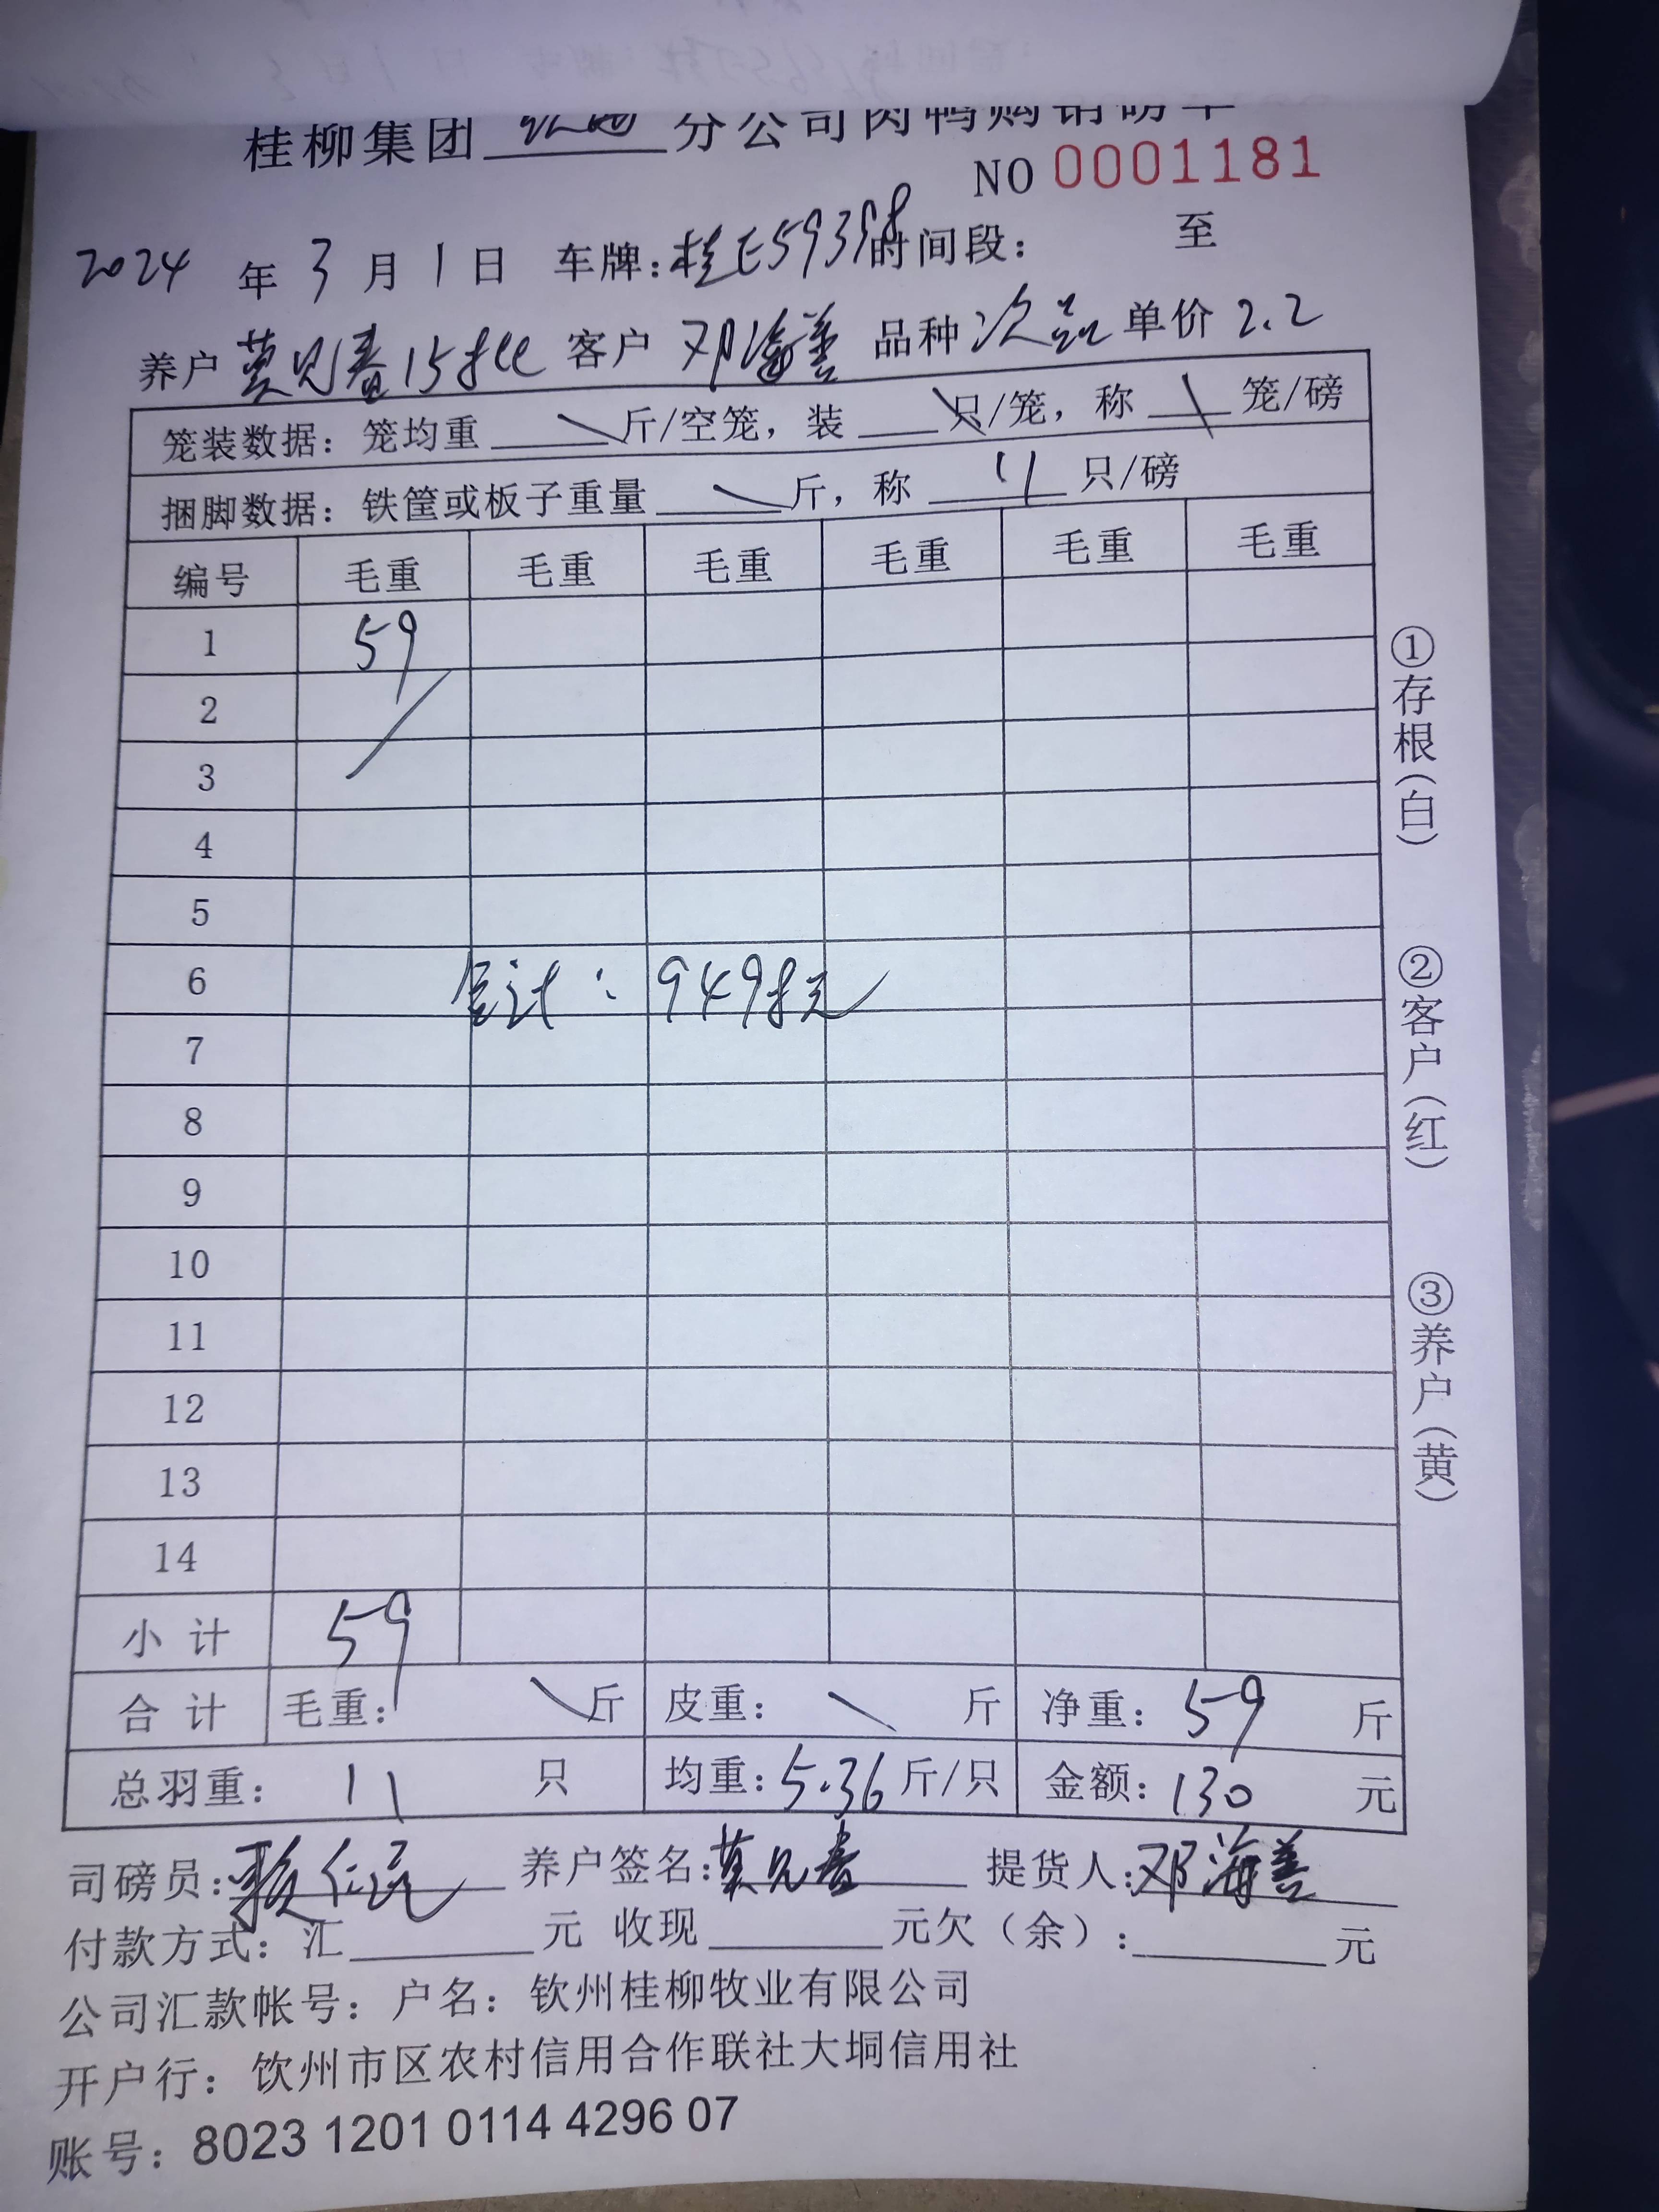 桂柳集团 分公司肉鸭购销磅单
NO 0001181
2024 年 3 月 1 日 车牌:桂E59398 时间段: 至
养户 莫见春15批 客户 邓海善 品种 次品 单价 2.2
笼装数据: 笼均重 \ 斤/空笼, 装 \ 只/笼, 称 \ 笼/磅
捆脚数据: 铁筐或板子重量 \ 斤, 称 11 只/磅
编号 毛重 毛重 毛重 毛重 毛重 毛重
1 59
2
3
4
5
6 合计: 9498元
7
8
9
10
11
12
13
14
小 计 59
合 计 毛重: \ 斤 皮重: \ 斤 净重: 59 斤
总羽重: 11 只 均重: 5.36 斤/只 金额: 130 元
司磅员: 养户签名:莫见春 提货人:邓海善
付款方式: 汇 元 收现 元欠(余): 元
公司汇款帐号: 户名: 钦州桂柳牧业有限公司
开户行: 钦州市区农村信用合作联社大垌信用社
账号: 8023 1201 0114 4296 07
①存根(白)
②客户(红)
③养户(黄)